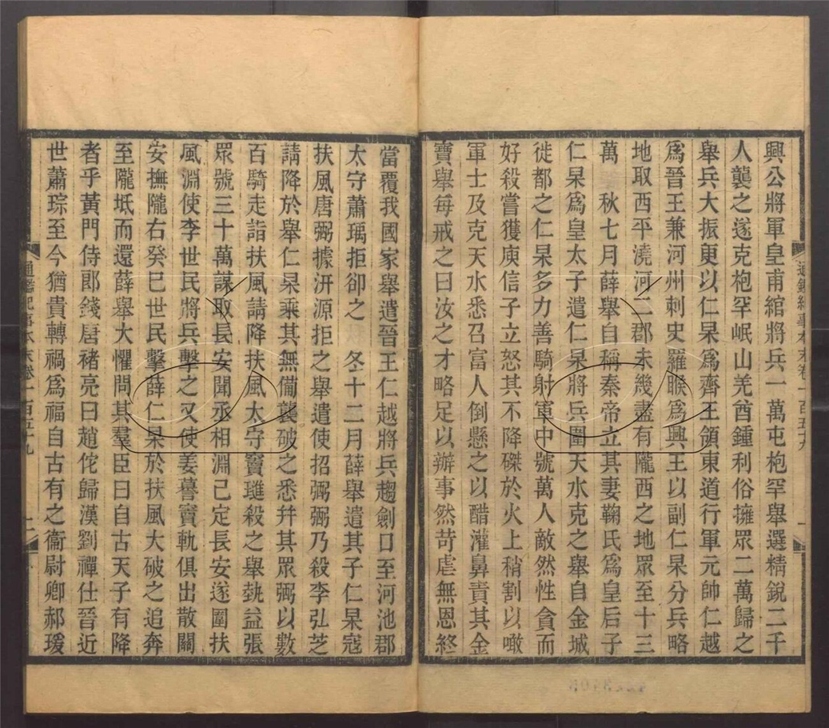 興公將軍皇甫綰將兵一萬屯枹罕舉選精銳二千
人襲之遂克枹罕岷山羌酋鍾利俗擁眾二萬歸之
舉兵大振更以仁杲為齊王領東道行軍元帥仁越
為晉王兼河州刺史羅睺為興王以副仁杲分兵略
地取西平澆河二郡未幾盡有隴西之地眾至十三
萬　秋七月薛舉自稱秦帝立其妻鞠氏為皇后子
仁杲為皇太子遣仁杲將兵圍天水克之舉自金城
徙都之仁杲多力善騎射軍中號萬人敵然性貪而
好殺嘗獲庾信子立怒其不降磔於火上稍割以噉
軍士及克天水悉召富人倒懸之以醋灌鼻責其金
寶舉每戒之曰汝之才略足以辦事然苛虐無恩終
通鑑紀事本末卷一百五十九
當覆我國家舉遣晉王仁越將兵趨劍口至河池郡
太守蕭瑀拒卻之　冬十二月薛舉遣其子仁杲寇
扶風唐弼據汧源拒之舉遣使招弼弼乃殺李弘芝
請降於舉仁杲乘其無備襲破之悉并其眾弼以數
百騎走詣扶風請降扶風太守竇璡殺之舉埶益張
眾號三十萬謀取長安聞丞相淵已定長安遂圍扶
風淵使李世民將兵擊之又使姜謩竇軌俱出散關
安撫隴右癸巳世民擊薛仁杲於扶風大破之追奔
至隴坻而還薛舉大懼問其羣臣曰自古天子有降
者乎黃門侍郎錢唐褚亮曰趙佗歸漢劉禪仕晉近
世蕭琮至今猶貴轉禍為福自古有之衞尉卿郝瑗
通鑑紀事本末卷一百五十九